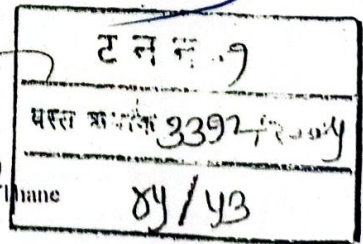 ट न न .१
दस्त क्रमांक ३३१२/२००५
hane
४५ / ५३